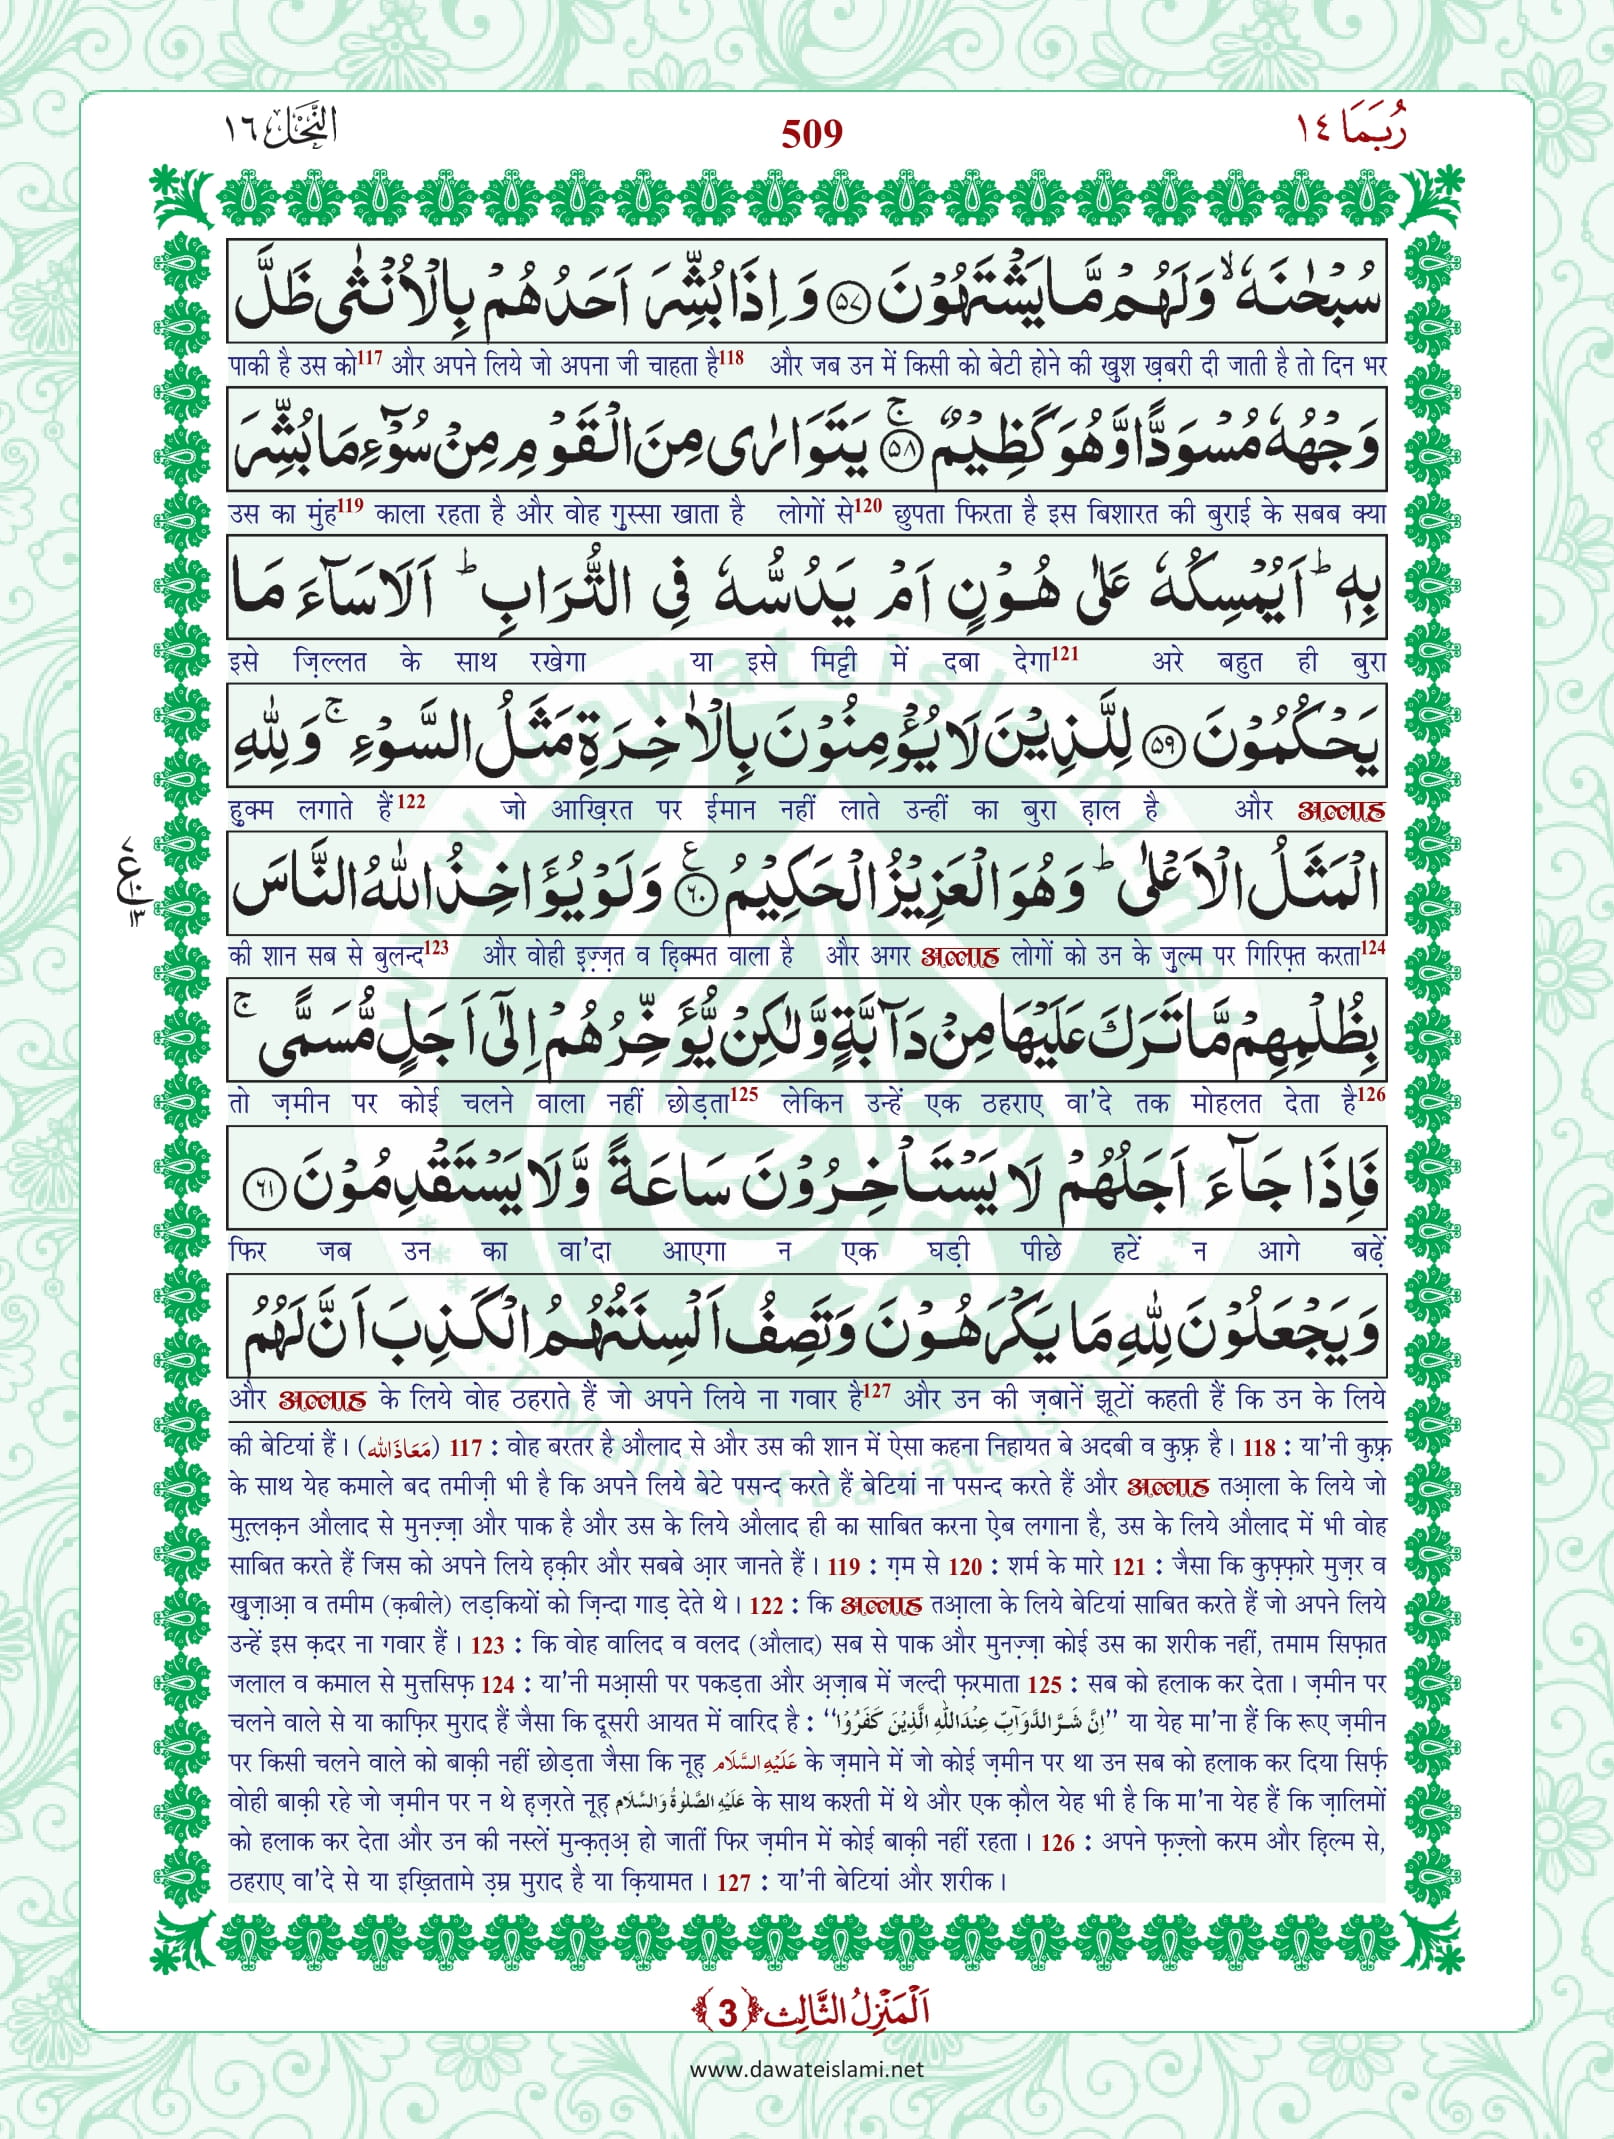 رُبَمَا ١٤
509
النَّحْل ١٦
سُبْحٰنَهٗ ۙ وَلَهُمْ مَّا يَشْتَهُوْنَ ﴿۵۷﴾ وَ اِذَا بُشِّرَ اَحَدُهُمْ بِالْاُنْثٰى ظَلَّ
पाकी है उस को117 और अपने लिये जो अपना जी चाहता है118 और जब उन में किसी को बेटी होने की खुश ख़बरी दी जाती है तो दिन भर
وَجْهُهٗ مُسْوَدًّا وَّ هُوَ كَظِيْمٌ ﴿۵۸﴾ ۚ يَتَوَارٰى مِنَ الْقَوْمِ مِنْ سُوْٓءِ مَا بُشِّرَ
उस का मुंह119 काला रहता है और वोह गुस्सा खाता है लोगों से120 छुपता फिरता है इस बिशारत की बुराई के सबब क्या
بِهٖ ؕ اَيُمْسِكُهٗ عَلٰى هُوْنٍ اَمْ يَدُسُّهٗ فِى التُّرَابِ ؕ اَلَا سَآءَ مَا
इसे ज़िल्लत के साथ रखेगा या इसे मिट्टी में दबा देगा121 अरे बहुत ही बुरा
يَحْكُمُوْنَ ﴿۵۹﴾ لِلَّذِيْنَ لَا يُؤْمِنُوْنَ بِالْاٰخِرَةِ مَثَلُ السَّوْءِ ۚ وَلِلّٰهِ
हुक्म लगाते हैं122 जो आख़िरत पर ईमान नहीं लाते उन्हीं का बुरा ह़ाल है और अल्लाह
الْمَثَلُ الْاَعْلٰى ؕ وَهُوَ الْعَزِيْزُ الْحَكِيْمُ ﴿۶۰﴾ ع وَلَوْ يُؤَاخِذُ اللّٰهُ النَّاسَ
की शान सब से बुलन्द123 और वोही इज़्ज़त व ह़िक्मत वाला है और अगर अल्लाह लोगों को उन के ज़ुल्म पर गिरिफ़्त करता124
بِظُلْمِهِمْ مَّا تَرَكَ عَلَيْهَا مِنْ دَآبَّةٍ وَّلٰكِنْ يُّؤَخِّرُهُمْ اِلٰٓى اَجَلٍ مُّسَمًّى ۚ
तो ज़मीन पर कोई चलने वाला नहीं छोड़ता125 लेकिन उन्हें एक ठहराए वा'दे तक मोहलत देता है126
فَاِذَا جَآءَ اَجَلُهُمْ لَا يَسْتَاْخِرُوْنَ سَاعَةً وَّلَا يَسْتَقْدِمُوْنَ ﴿۶۱﴾
फिर जब उन का वा'दा आएगा न एक घड़ी पीछे हटें न आगे बढ़ें
وَيَجْعَلُوْنَ لِلّٰهِ مَا يَكْرَهُوْنَ وَتَصِفُ اَلْسِنَتُهُمُ الْكَذِبَ اَنَّ لَهُمُ
और अल्लाह के लिये वोह ठहराते हैं जो अपने लिये ना गवार है127 और उन की ज़बानें झूटों कहती हैं कि उन के लिये
की बेटियां हैं। (مَعَاذَ اللّٰه) 117 : वोह बरतर है औलाद से और उस की शान में ऐसा कहना निहायत बे अदबी व कुफ़्र है। 118 : या'नी कुफ़्र
के साथ येह कमाले बद तमीज़ी भी है कि अपने लिये बेटे पसन्द करते हैं बेटियां ना पसन्द करते हैं और अल्लाह तआ़ला के लिये जो
मुत़्लक़न औलाद से मुनज़्ज़ा और पाक है और उस के लिये औलाद ही का साबित करना ऐ़ब लगाना है, उस के लिये औलाद में भी वोह
साबित करते हैं जिस को अपने लिये ह़क़ीर और सबबे आ़र जानते हैं। 119 : ग़म से 120 : शर्म के मारे 121 : जैसा कि कुफ़्फ़ारे मुज़र व
खुज़ाआ़ व तमीम (क़बीले) लड़कियों को ज़िन्दा गाड़ देते थे। 122 : कि अल्लाह तआ़ला के लिये बेटियां साबित करते हैं जो अपने लिये
उन्हें इस क़दर ना गवार हैं। 123 : कि वोह वालिद व वलद (औलाद) सब से पाक और मुनज़्ज़ा कोई उस का शरीक नहीं, तमाम सिफ़ात
जलाल व कमाल से मुत्तसिफ़ 124 : या'नी मआ़सी पर पकड़ता और अ़ज़ाब में जल्दी फ़रमाता 125 : सब को हलाक कर देता। ज़मीन पर
चलने वाले से या काफ़िर मुराद हैं जैसा कि दूसरी आयत में वारिद है : ‘‘اِنَّ شَرَّ الدَّوَآبِّ عِنْدَ اللّٰهِ الَّذِيْنَ كَفَرُوْا’’ या येह मा'ना हैं कि रूए ज़मीन
पर किसी चलने वाले को बाक़ी नहीं छोड़ता जैसा कि नूह़ عَلَيْهِ السَّلَام के ज़माने में जो कोई ज़मीन पर था उन सब को हलाक कर दिया सिर्फ़
वोही बाक़ी रहे जो ज़मीन पर न थे ह़ज़रते नूह़ عَلَيْهِ الصَّلٰوةُ وَالسَّلَام के साथ कश्ती में थे और एक क़ौल येह भी है कि मा'ना येह हैं कि ज़ालिमों
को हलाक कर देता और उन की नस्लें मुन्क़त़अ़ हो जातीं फिर ज़मीन में कोई बाक़ी नहीं रहता। 126 : अपने फ़ज़्लो करम और ह़िल्म से,
ठहराए वा'दे से या इख़्तितामे उ़म्र मुराद है या क़ियामत। 127 : या'नी बेटियां और शरीक।
اَلْمَنْزِلُ الثَّالِث ﴿3﴾
www.dawateislami.net